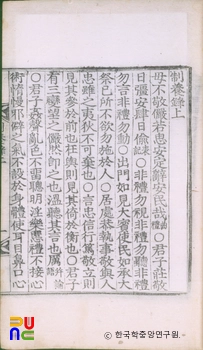 制養錄上
毋不敬儼若思安定辭安民哉○君子莊敬
日强安肆日偸○非禮勿視非禮勿聽非禮
勿言非禮勿動○出門如見大賓使民如承大
祭己所不欲勿施於人○居處恭執事敬與人
忠雖之夷狄不可棄也○言忠信行篤敬立則
見其參於前也在輿則見其倚於衡也○君子
有三變望之儼然卽之也溫聽其言也厲
○君子姦聲亂色不留聰明淫樂慝禮不接心
術惰慢邪僻之氣不設於身體使耳目鼻口心
ⓒ 한국학중앙연구원